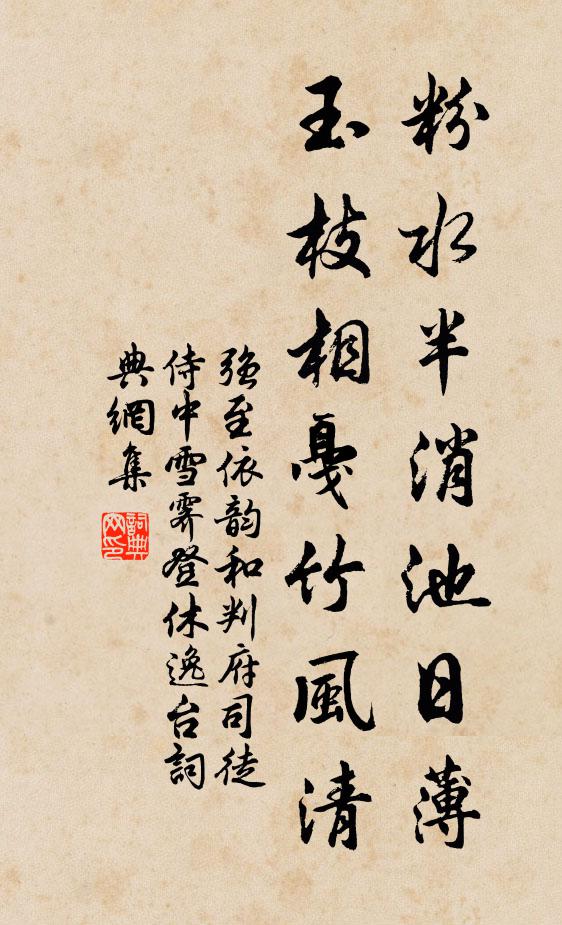 粉水半消池日薄
玉枝相戛竹風清
强至依韵和判府司徒
侍中雪霽登休逸台詞
典網集
詞典網印